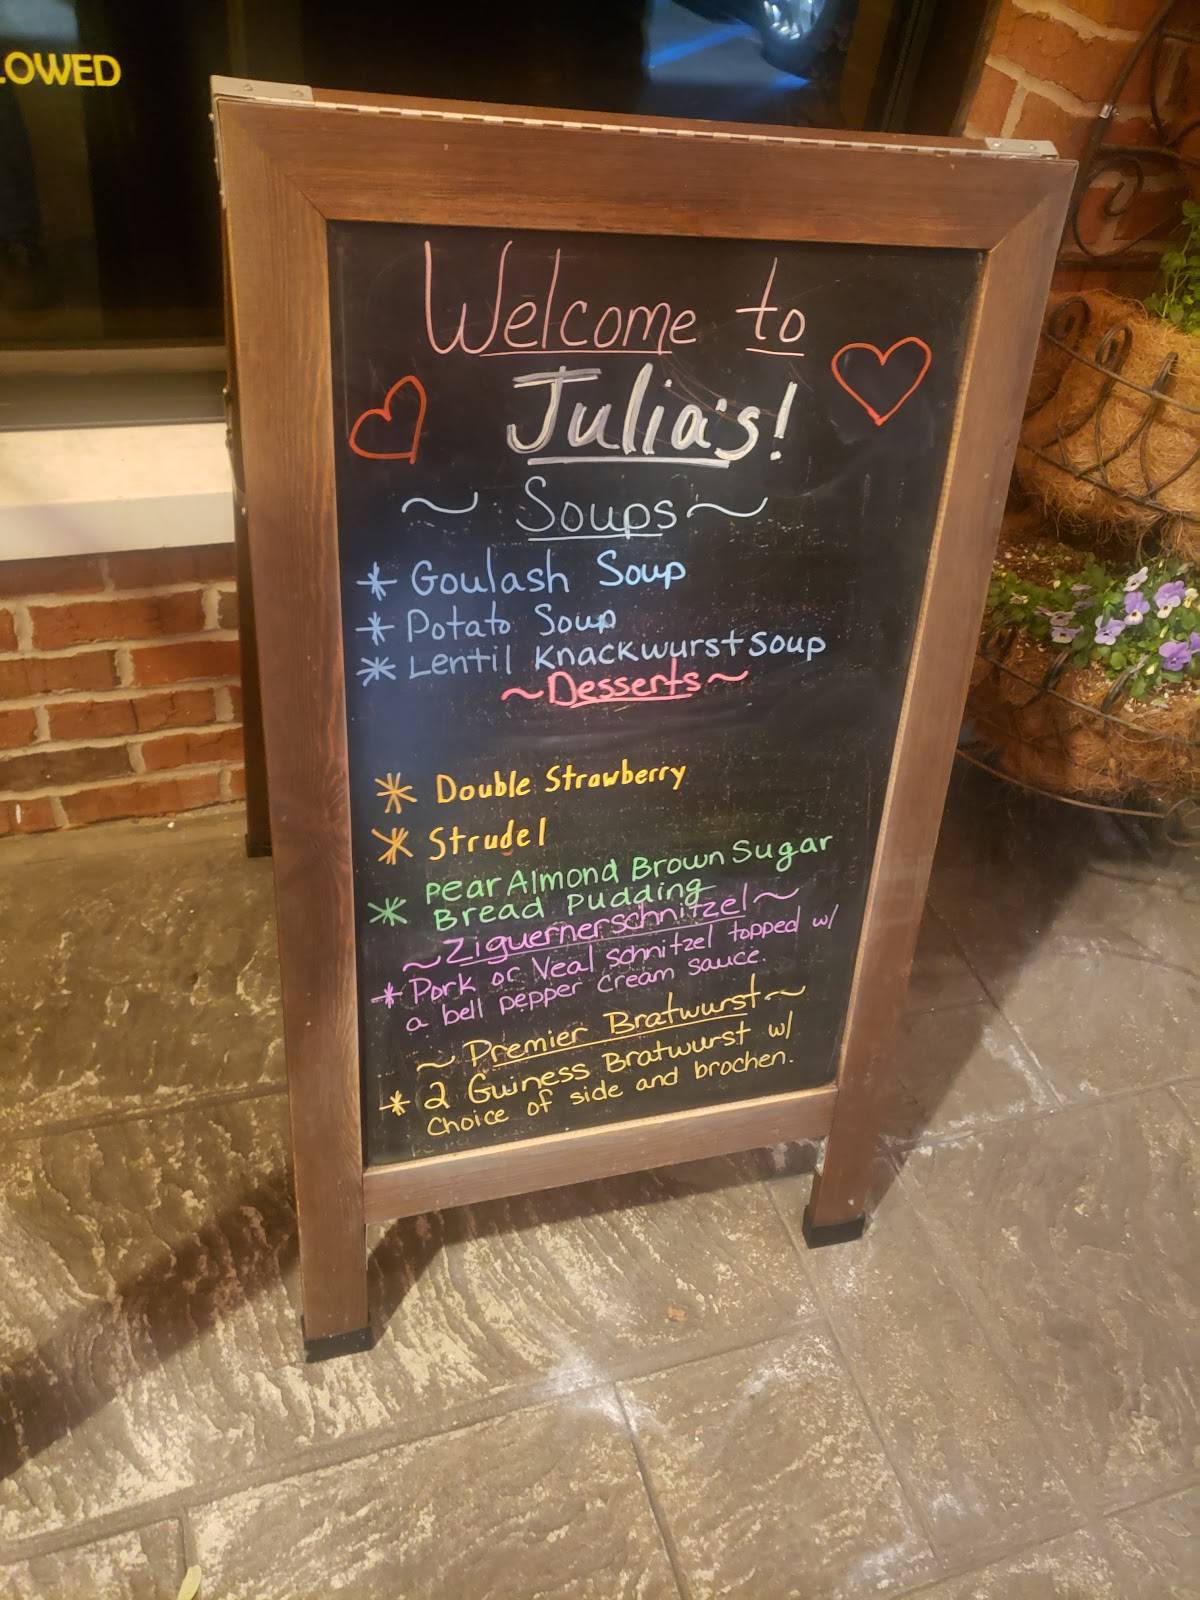 LOWED
Welcome to
Julia's!
~ Soups ~
* Goulash Soup
* Potato Soup
* Lentil Knackwurst Soup
~ Desserts ~
* Double Strawberry
* Strudel
* Pear Almond Brown Sugar
Bread Pudding
~ Ziguernerschnitzel ~
* Pork or Veal schnitzel topped w/
a bell pepper cream sauce.
~ Premier Bratwurst ~
* 2 Guiness Bratwurst w/
Choice of side and brochen.